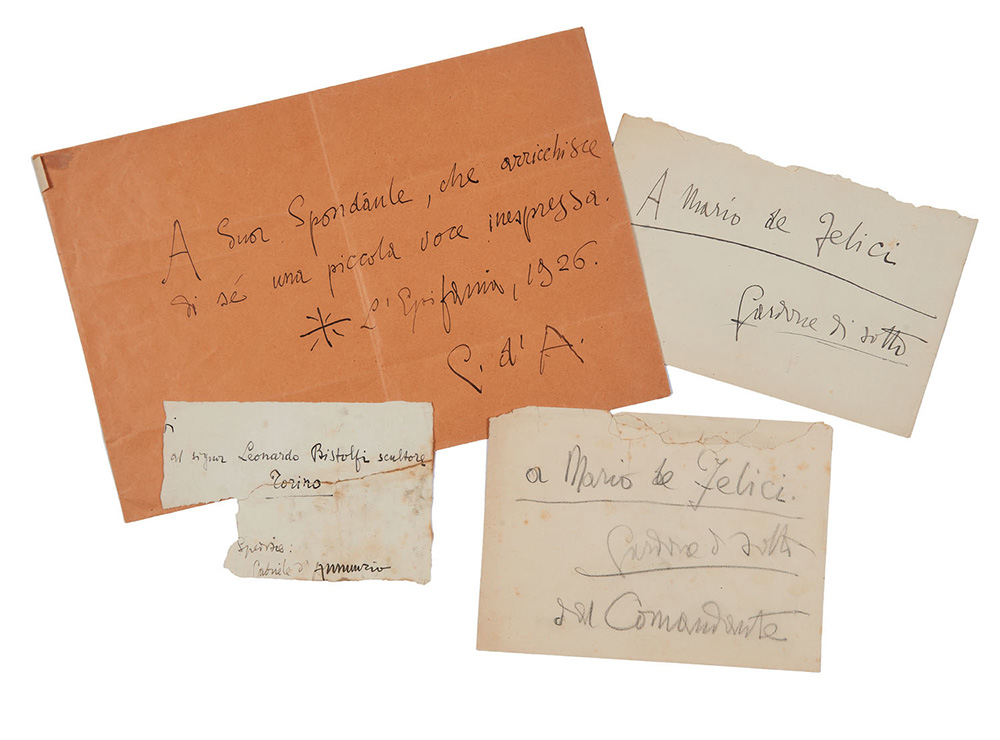 A Suor Spondànte, che arricchisce
di sé una piccola voce inespressa.
L'Epifania, 1926.
G. d'A.
A Mario de Felici
Gardone di sotto
al signor Leonardo Bistolfi scultore
Torino
Gabriele d'Annunzio
a Mario de Felici.
Gardone di sotto
dal Comandante